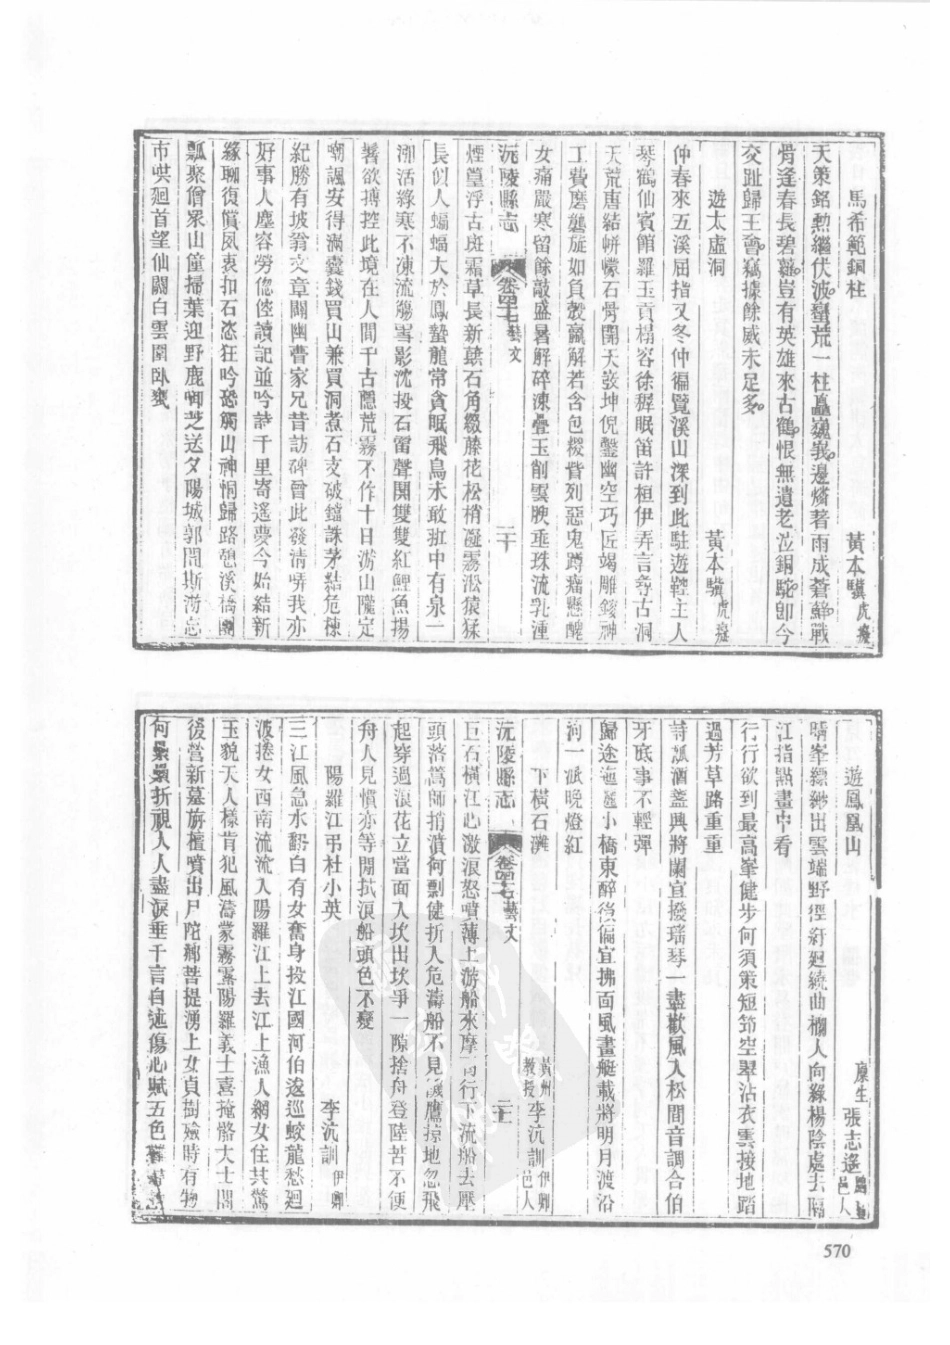 馬希範銅柱　黃本驥虎癡
天策銘勲繼伏波蠻荒一柱矗巍峩邊燐著雨成蒼蘚戰
骨逢春長碧蘿豈有英雄來古鶴恨無遺老泣銅駝卽今
交趾歸王會竊據餘威未足多
遊太虛洞　黃本驥虎癡
仲春來五溪屈指又冬仲徧覽溪山深到此駐遊鞚主人
琴鶴仙賓館羅玉貢榻容徐穉眠笛許桓伊弄言尋古洞
天荒唐結帡幪石骨開天弢坤倪鑿幽空巧匠竭雕鎪神
工費磨礱旋如負殼臝解若含包糉臂列惡鬼蹲瘤懸醜
女痛嚴寒留餘敲盛暑解碎凍疊玉削雲腴垂珠流乳湩
沅陵縣志　卷四十七藝文　二十
煙篁浮古斑霜草長新䔿石角綴藤花松梢凝霧淞猿猱
長似人蝙蝠大於鳳蟄龍常貪眠飛鳥未敢哢中有泉一
泖活緣寒不凍流觴雪影沈投石雷聲閧雙雙紅鯉魚揚
鬐欲搏控此境在人間千古隱荒霧不作十日游山隴定
嘲諷安得滿囊錢買山兼買洞煮石支破鐺誅茅結危棟
紀勝有坡翁文章闢幽曹家兄昔訪碑曾此發清哢我亦
好事人塵容勞倥傯讀記並吟詩千里寄遙夢今始結新
緣聊復償夙衷扣石恣狂吟恐觸山神恫歸路憩溪橋
瓢聚僧眾山僮掃葉迎野鹿啣芝送夕陽城郭間斯游忘
市哄廻首望仙關白雲園臥甕
遊鳳凰山　廩生張志遙邑人
晴峯縹緲出雲端野徑紆廻繞曲欄人向綠楊陰處去隔
江指點畫中看
行行欲到最高峯健步何須策短筇空翠沾衣雲接地踏
過芳草路重重
詩瓢酒盞興將闌宜撥瑤琴一盡歡風入松間音調合伯
牙底事不輕彈
歸途迤邐小橋東醉後偏宜拂面風畫艇載將明月渡沿
河一派晚燈紅
下橫石灘　黃州教授李沆訓伊卿邑人
沅陵縣志　卷四十七藝文　二十一
巨石橫江心激浪怒噴薄上游船來摩石行下流船去壓
頭落篙師捎濆何剽健折人危濤船不見饑鷹掠地忽飛
起穿過浪花立當面入坎出坎爭一隙捨舟登陸苦不便
舟人見慣亦等閒拭淚船頭色不變
陽羅江弔杜小英　李沆訓伊卿
三江風急水翻白有女奮身投江國河伯逡巡蛟龍愁廻
波捲女西南流流入陽羅江上去江上漁人網女住共驚
玉貌天人樣肯犯風濤蒙霧露陽羅義士喜掩骼大士閣
後營新墓旃檀噴出尸陀鄉菩提湧上女貞樹殮時有物
何纍纍折視人人盡淚垂千言自述傷心賦五色
570